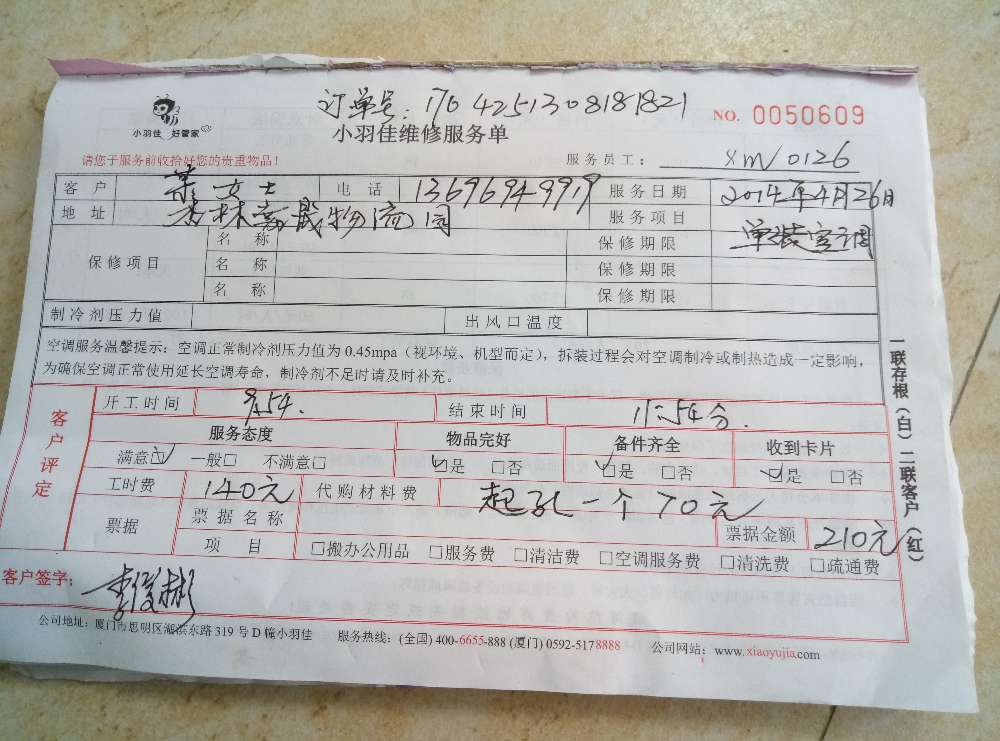 订单号:1704251308181821
小羽佳 好管家
小羽佳维修服务单
NO. 0050609
请您于服务前收拾好您的贵重物品!
服务员工: xm0126
客户 叶女士 电话 13696949919 服务日期 2014年4月26日
地址 杏林嘉晟物流园 服务项目 单装空调
保修项目 名称 保修期限
名称 保修期限
名称 保修期限
制冷剂压力值 出风口温度
空调服务温馨提示:空调正常制冷剂压力值为0.45mpa(视环境、机型而定),拆装过程会对空调制冷或制热造成一定影响,
为确保空调正常使用延长空调寿命,制冷剂不足时请及时补充。
客户评定
开工时间 结束时间 11:54分
服务态度 物品完好 备件齐全 收到卡片
满意☑ 一般□ 不满意□ ☑是 □否 ☑是 □否 ☑是 □否
工时费 140元 代购材料费 起孔一个70元
票据 票据名称 票据金额 210元
项目 □搬办公用品 □服务费 □清洁费 □空调服务费 □清洗费 □疏通费
客户签字: 李俊彬
公司地址:厦门市思明区湖滨东路319号D幢小羽佳 服务热线:(全国)400-6655-888 (厦门)0592-5178888 公司网站:www.xiaoyujia.com
一联存根(白)二联客户(红)